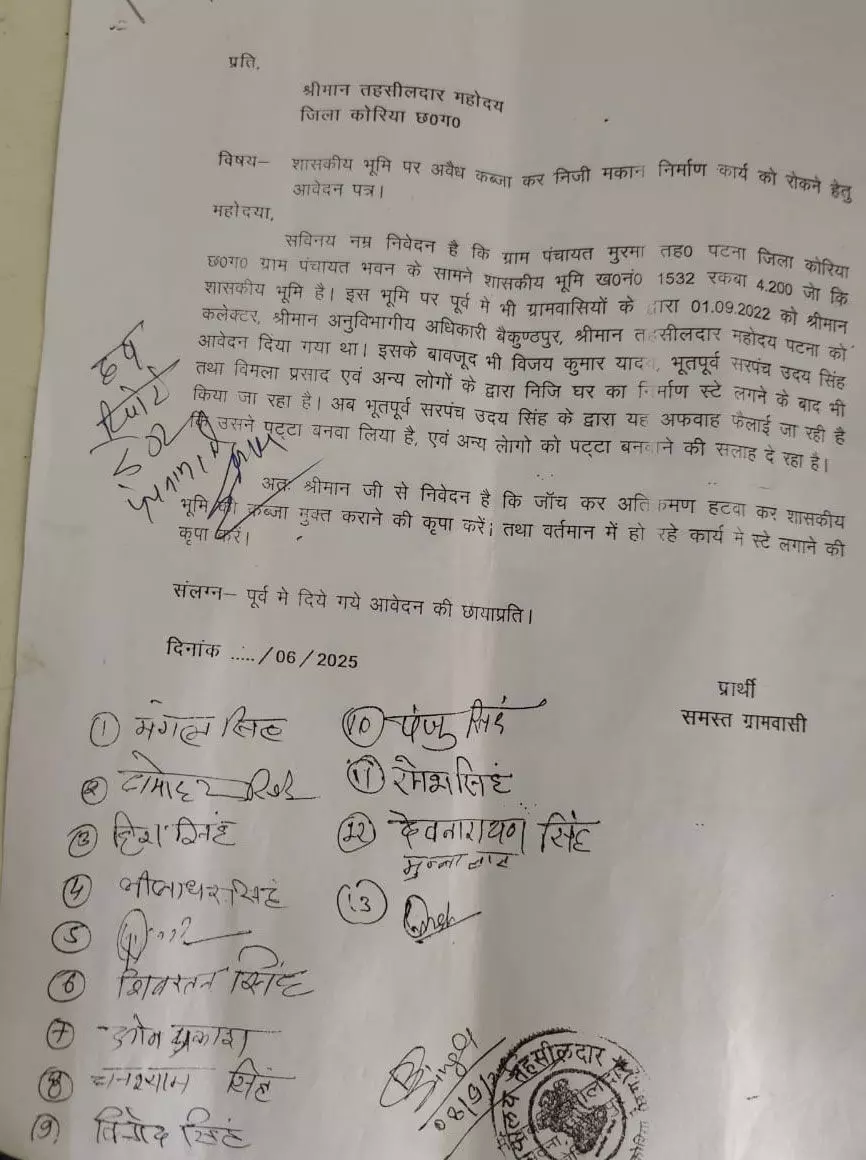 प्रति,
श्रीमान तहसीलदार महोदय
जिला कोरिया छ0ग0
विषय– शासकीय भूमि पर अवैध कब्जा कर निजी मकान निर्माण कार्य को रोकने हेतु
आवेदन पत्र।
महोदया,
सविनय नम्र निवेदन है कि ग्राम पंचायत मुरमा तह0 पटना जिला कोरिया
छ0ग0 ग्राम पंचायत भवन के सामने शासकीय भूमि ख0नं0 1532 रकबा 4.200 जेा कि
शासकीय भूमि है। इस भूमि पर पूर्व मे भी ग्रामवासियों के द्वारा 01.09.2022 को श्रीमान
कलेक्टर, श्रीमान अनुविभागीय अधिकारी बैकुण्ठपुर, श्रीमान तहसीलदार महोदय पटना को
आवेदन दिया गया था। इसके बावजूद भी विजय कुमार यादव, भूतपूर्व सरपंच उदय सिंह
तथा विमला प्रसाद एवं अन्य लोगों के द्वारा निजि घर का निर्माण स्टे लगने के बाद भी
किया जा रहा है। अब भूतपूर्व सरपंच उदय सिंह के द्वारा यह अफवाह फैलाई जा रही है
कि उसने पट्टा बनवा लिया है, एवं अन्य लेागो को पट्टा बनवाने की सलाह दे रहा है।
अतः श्रीमान जी से निवेदन है कि जॉच कर अतिक्रमण हटवा कर शासकीय
भूमि को कब्जा मुक्त कराने की कृपा करें। तथा वर्तमान में हो रहे कार्य मे स्टे लगाने की
कृपा करें।
संलग्न– पूर्व मे दिये गये आवेदन की छायाप्रति।
दिनांक ...../06/2025
प्रार्थी
समस्त ग्रामवासी
① मंगल सिंह
② दामोदर सिंह
③ हिरा सिंह
④ लीलाधर सिंह
⑤
⑥ शिवरतन सिंह
⑦ ओम प्रकाश
⑧ घनश्याम सिंह
⑨ विनोद सिंह
⑩ पंजु सिंह
⑪ रमेश सिंह
⑫ देवनारायण सिंह
मुन्ना लाल
⑬
तहसीलदार